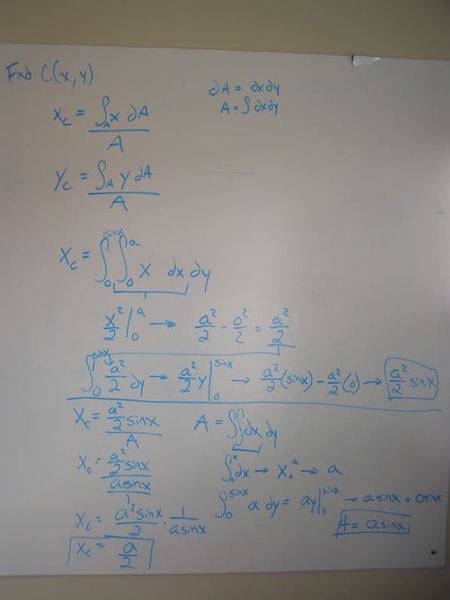 Find C(x,y)
∂A = ∂x∂y
A = ∫∂x∂y
Xc = ∫A x ∂A / A
Yc = ∫A y ∂A / A
Xc = ∫₀^sinx ∫₀^a x ∂x ∂y
x²/2 |₀^a → a²/2 - 0²/2 = a²/2
∫₀^sinx a²/2 ∂y → a²/2 y |₀^sinx → a²/2 (sinx) - a²/2 (0) → a²/2 sinx
Xc = a²/2 sinx / A
A = ∫∫∂x∂y
Xc = a²/2 sinx / a sinx
∫₀^a ∂x → x₀^a → a
Xc = a² sinx / 2 · 1 / a sinx
∫₀^sinx a ∂y = ay |₀^sinx → a sinx +
A = a sinx
Xc = a/2